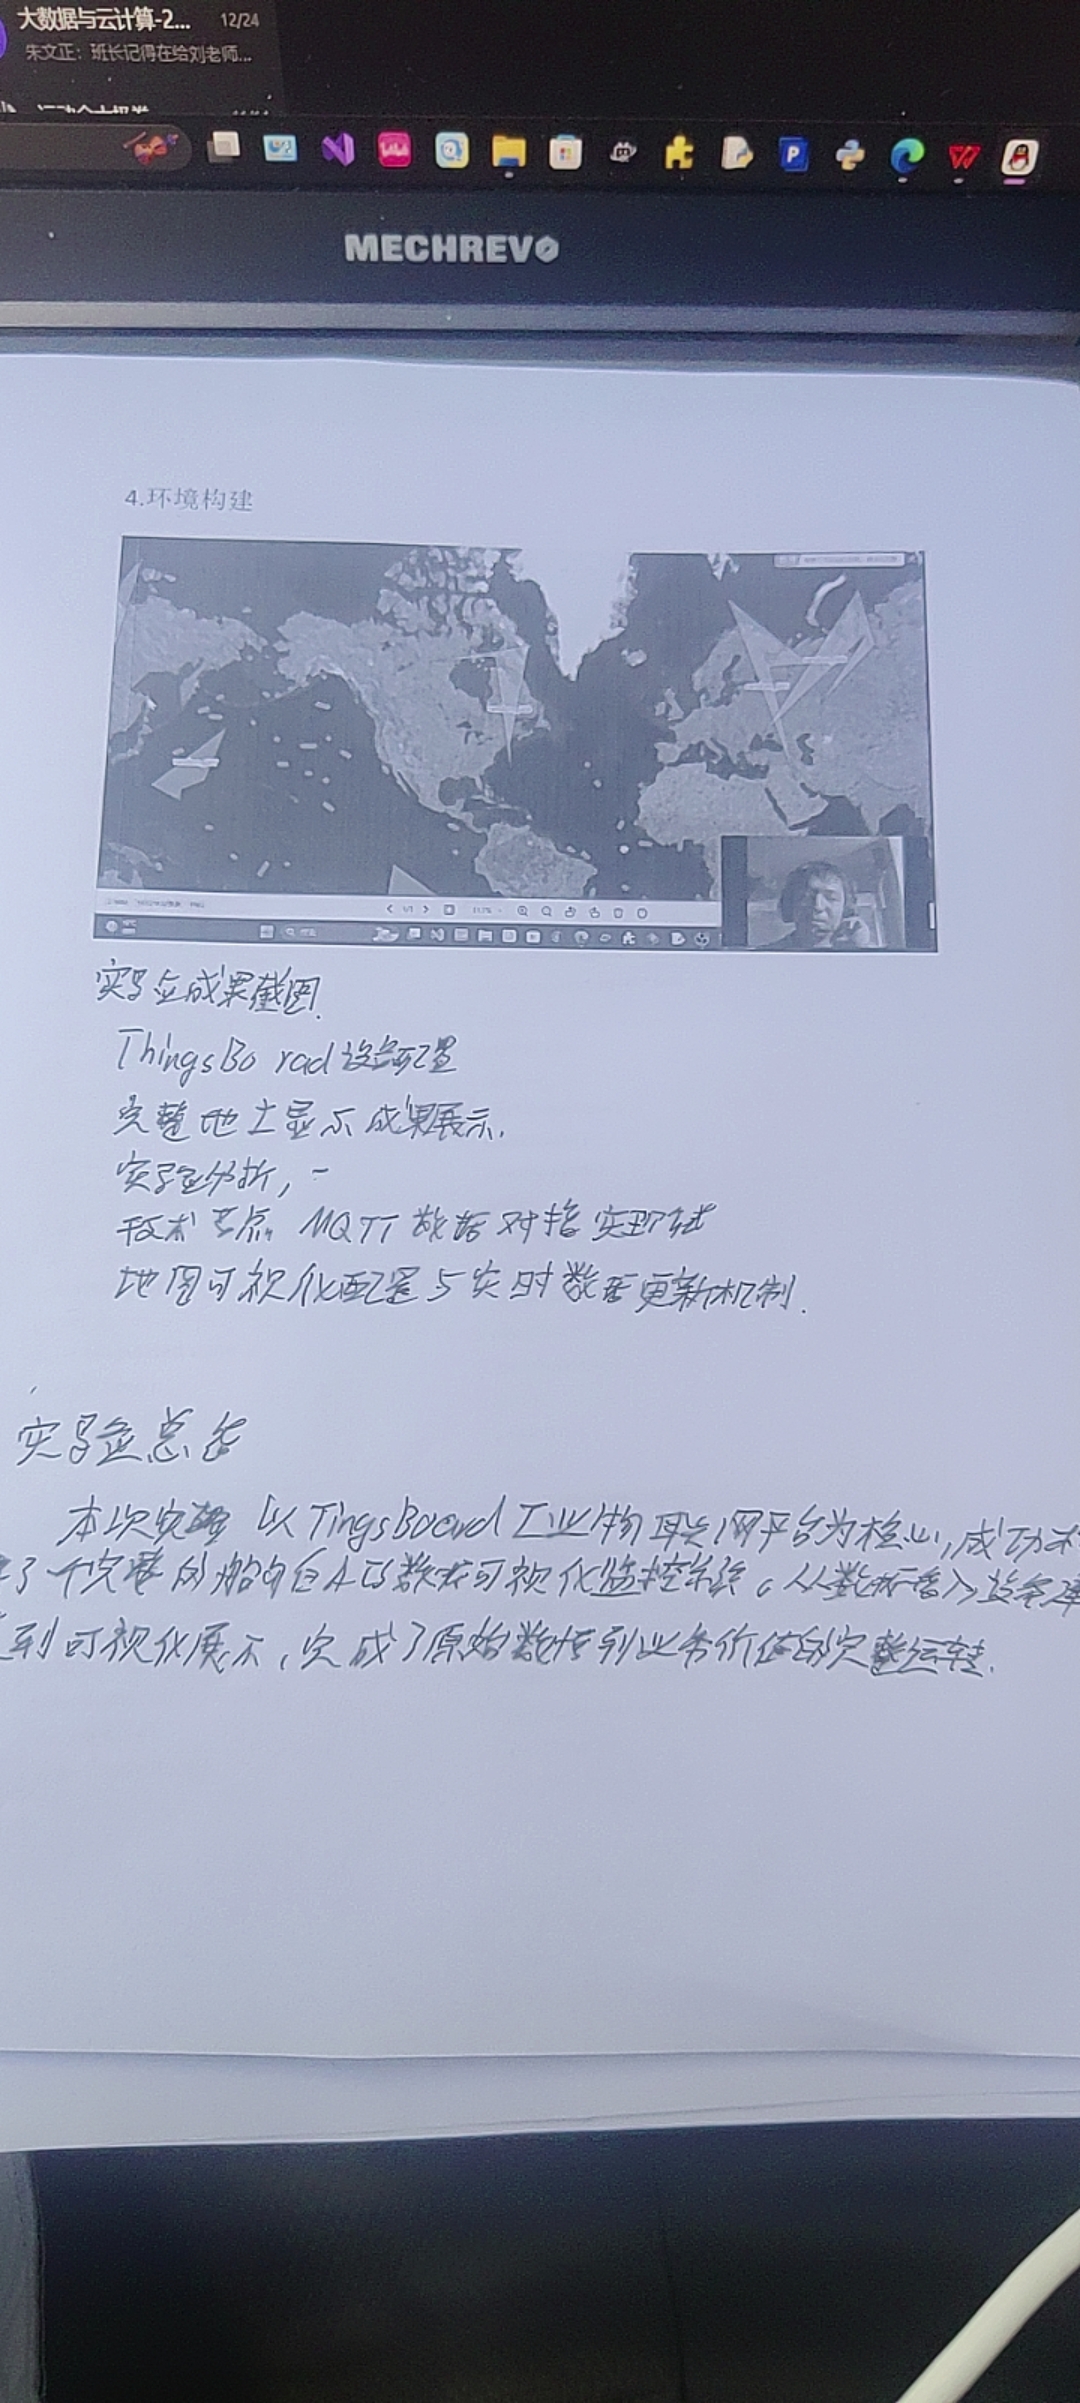 大数据与云计算-2...
12/24
朱文正：班长记得在给刘老师...
MECHREVO
4.环境构建
实验成果截图.
ThingsBo rad设备配置
完整地土显示成果展示.
实验分析，-
技术 MQTT 数据对接实现
地图可视化配置与实时数据更新机制.
实验总结
本次实验 以TingsBoard工业物联网平台为核心,成功
了个完整的船舶AIS数据可视化监控系统。从数据
到可视化展示,完成了原始数据到业务价值的完整运转.